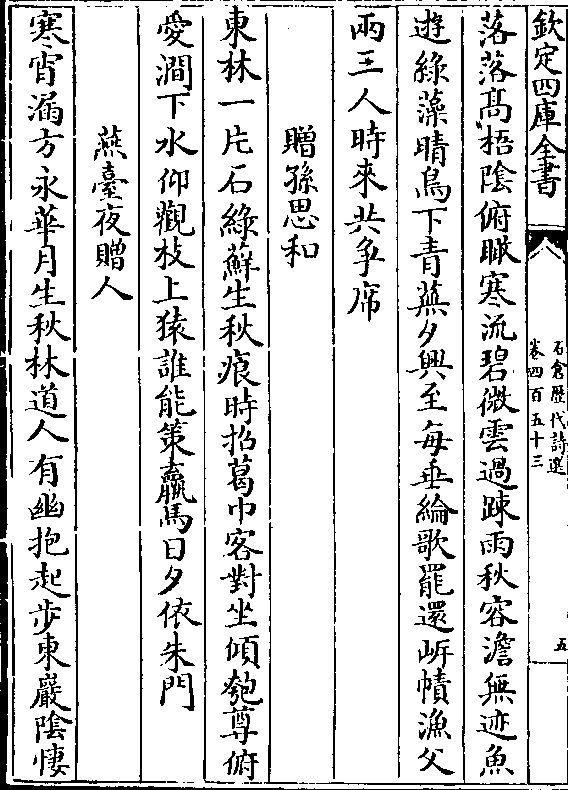 欽定四庫全書
石倉歴代詩選
卷四百五十三
五
落落髙梧陰俯瞰寒流碧微雲過踈雨秋容澹無迹魚
遊綠藻晴鳥下青蕪夕興至每垂綸歌罷還岸幘漁父
兩三人時來共爭席
贈孫思和
東林一片石綠蘚生秋痕時招葛巾客對坐傾匏尊俯
愛澗下水仰觀枝上猿誰能策羸馬日夕依朱門
燕臺夜贈人
寒宵漏方永華月生秋林道人有幽抱起步東巖陰悽